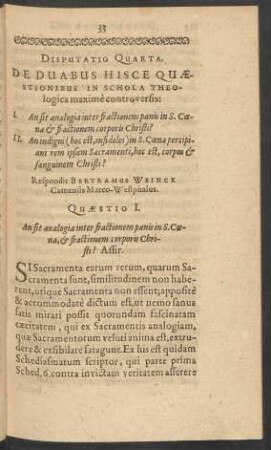 33
DISPUTATIO QUARTA.
DE DUABUS HISCE QUÆ-
STIONIBUS IN SCHOLA THEO-
logica maximè controversis:
I. An sit analogia inter fractionem panis in S. Cœ-
na & fractionem corporis Christi?
II. An indigni (hoc est, infideles) in S. Cœna percipi-
ant rem ipsam Sacramenti, hoc est, corpus &
sanguinem Christi?
Respondit BERTRAMUS WEINCK
Camensis Marco-Westphalus.
QUÆSTIO I.
An sit analogia inter fractionem panis in S. Cœ-
na, & fractionem corporis Chri-
sti? Affir.
SI Sacramenta earum rerum, quarum Sa-
cramenta sunt, similitudinem non habe-
rent, utique Sacramenta non essent; appositè
& accommodatè dictum est, ut nemo sanus
satis mirari possit quorundam fascinatam
cæcitatem, qui ex Sacramentis analogiam,
quæ Sacramentorum veluti anima est, extru-
dere & exsibilare satagunt. Ex his est quidam
Schediasmatum scriptor, qui parte prima
Sched. 6. contra invictam veritatem asserere